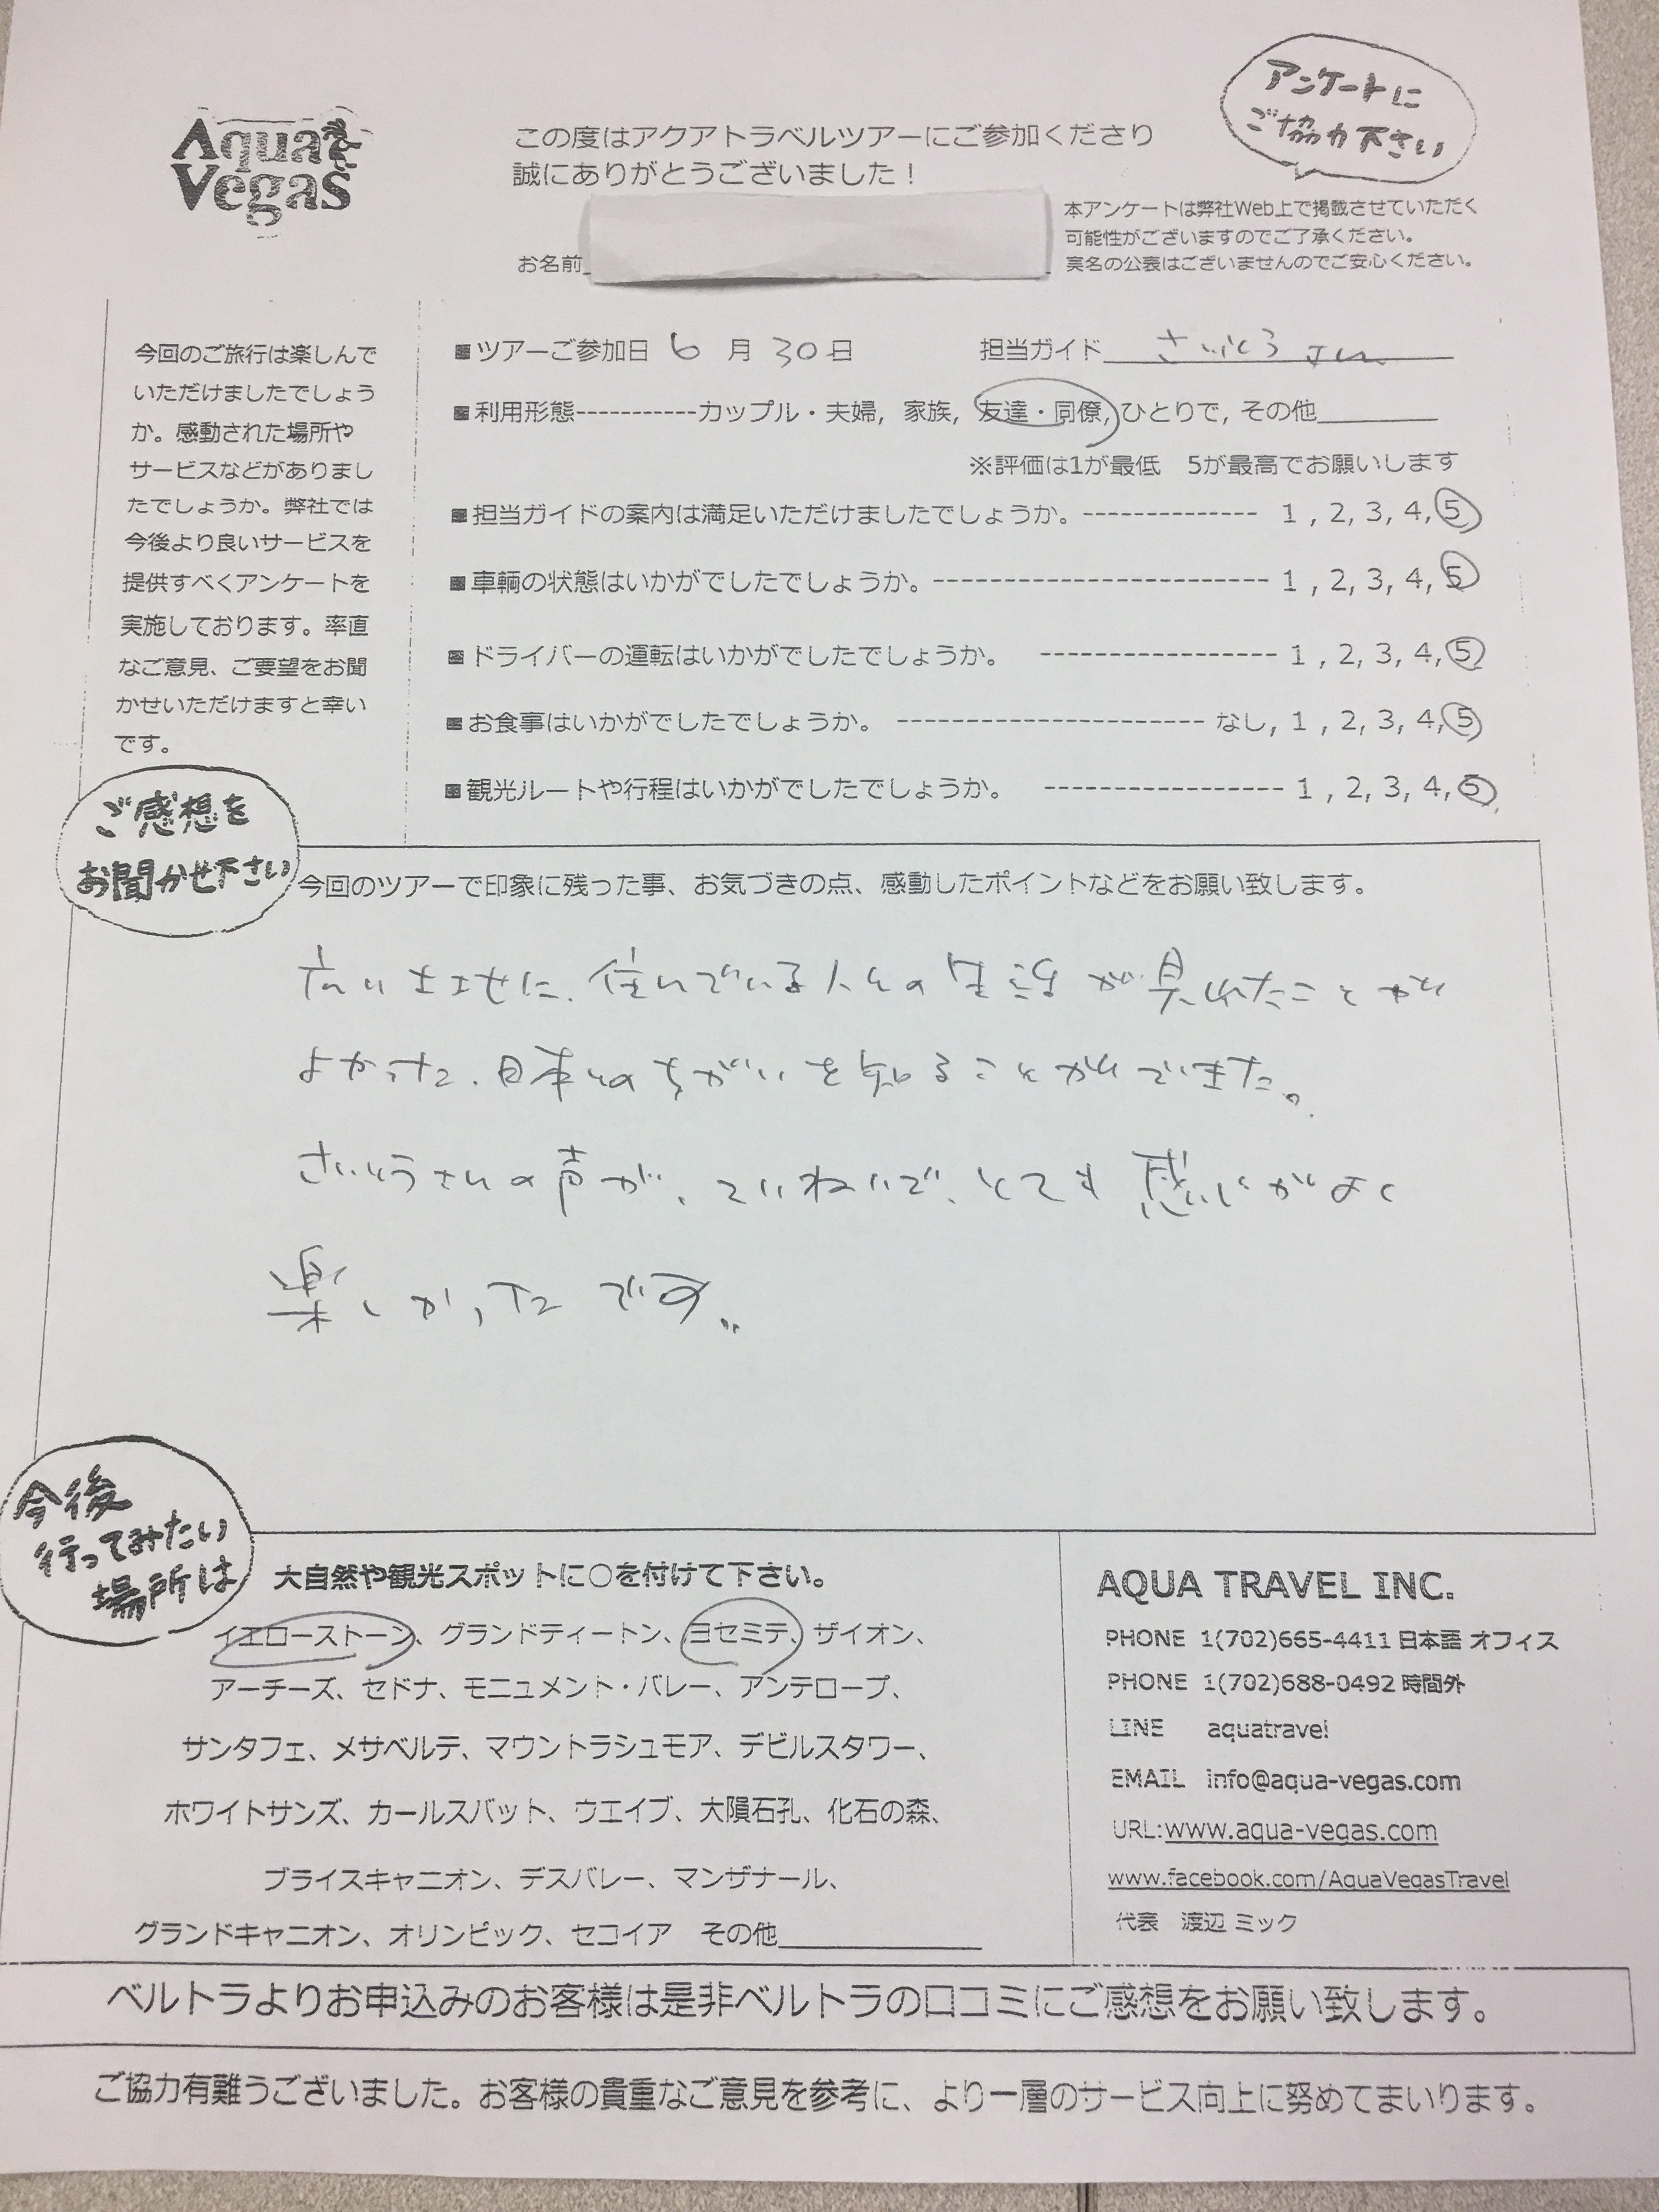 Aqua
Vegas
この度はアクアトラベルツアーにご参加くださり
誠にありがとうございました！
アンケートに
ご協力下さい
本アンケートは弊社Web上で掲載させていただく
可能性がございますのでご了承ください。
実名の公表はございませんのでご安心ください。
お名前
今回のご旅行は楽しんで
いただけましたでしょう
か。感動された場所や
サービスなどがありまし
たでしょうか。弊社では
今後より良いサービスを
提供すべくアンケートを
実施しております。率直
なご意見、ご要望をお聞
かせいただけますと幸い
です。
■ツアーご参加日 6 月 30日 担当ガイド さいとうさん
■利用形態-----------カップル・夫婦, 家族, 友達・同僚, ひとりで, その他
※評価は1が最低 5が最高でお願いします
■担当ガイドの案内は満足いただけましたでしょうか。------------- 1 , 2, 3, 4, 5
■車輌の状態はいかがでしたでしょうか。------------------------- 1 , 2, 3, 4, 5
■ドライバーの運転はいかがでしたでしょうか。 ----------------- 1 , 2, 3, 4, 5
■お食事はいかがでしたでしょうか。 ---------------------- なし, 1 , 2, 3, 4, 5
■観光ルートや行程はいかがでしたでしょうか。 ----------------- 1 , 2, 3, 4, 5
ご感想を
お聞かせ下さい
今回のツアーで印象に残った事、お気づきの点、感動したポイントなどをお願い致します。
広い土地に、住んでいる人々の生活が見れたことが
よかった、日本とのちがいを知ることができました。
さいとうさんの声が、ていねいで、とても感じがよく
楽しかったです。
今後
行ってみたい
場所は
大自然や観光スポットに○を付けて下さい。
イエローストーン、グランドティートン、ヨセミテ、ザイオン、
アーチーズ、セドナ、モニュメント・バレー、アンテロープ、
サンタフェ、メサベルテ、マウントラシュモア、デビルスタワー、
ホワイトサンズ、カールスバット、ウエイブ、大隕石孔、化石の森、
ブライスキャニオン、デスバレー、マンザナール、
グランドキャニオン、オリンピック、セコイア その他
AQUA TRAVEL INC.
PHONE 1(702)665-4411 日本語 オフィス
PHONE 1(702)688-0492 時間外
LINE aquatravel
EMAIL info@aqua-vegas.com
URL:www.aqua-vegas.com
www.facebook.com/AquaVegasTravel
代表 渡辺 ミック
ベルトラよりお申込みのお客様は是非ベルトラの口コミにご感想をお願い致します。
ご協力有難うございました。お客様の貴重なご意見を参考に、より一層のサービス向上に努めてまいります。